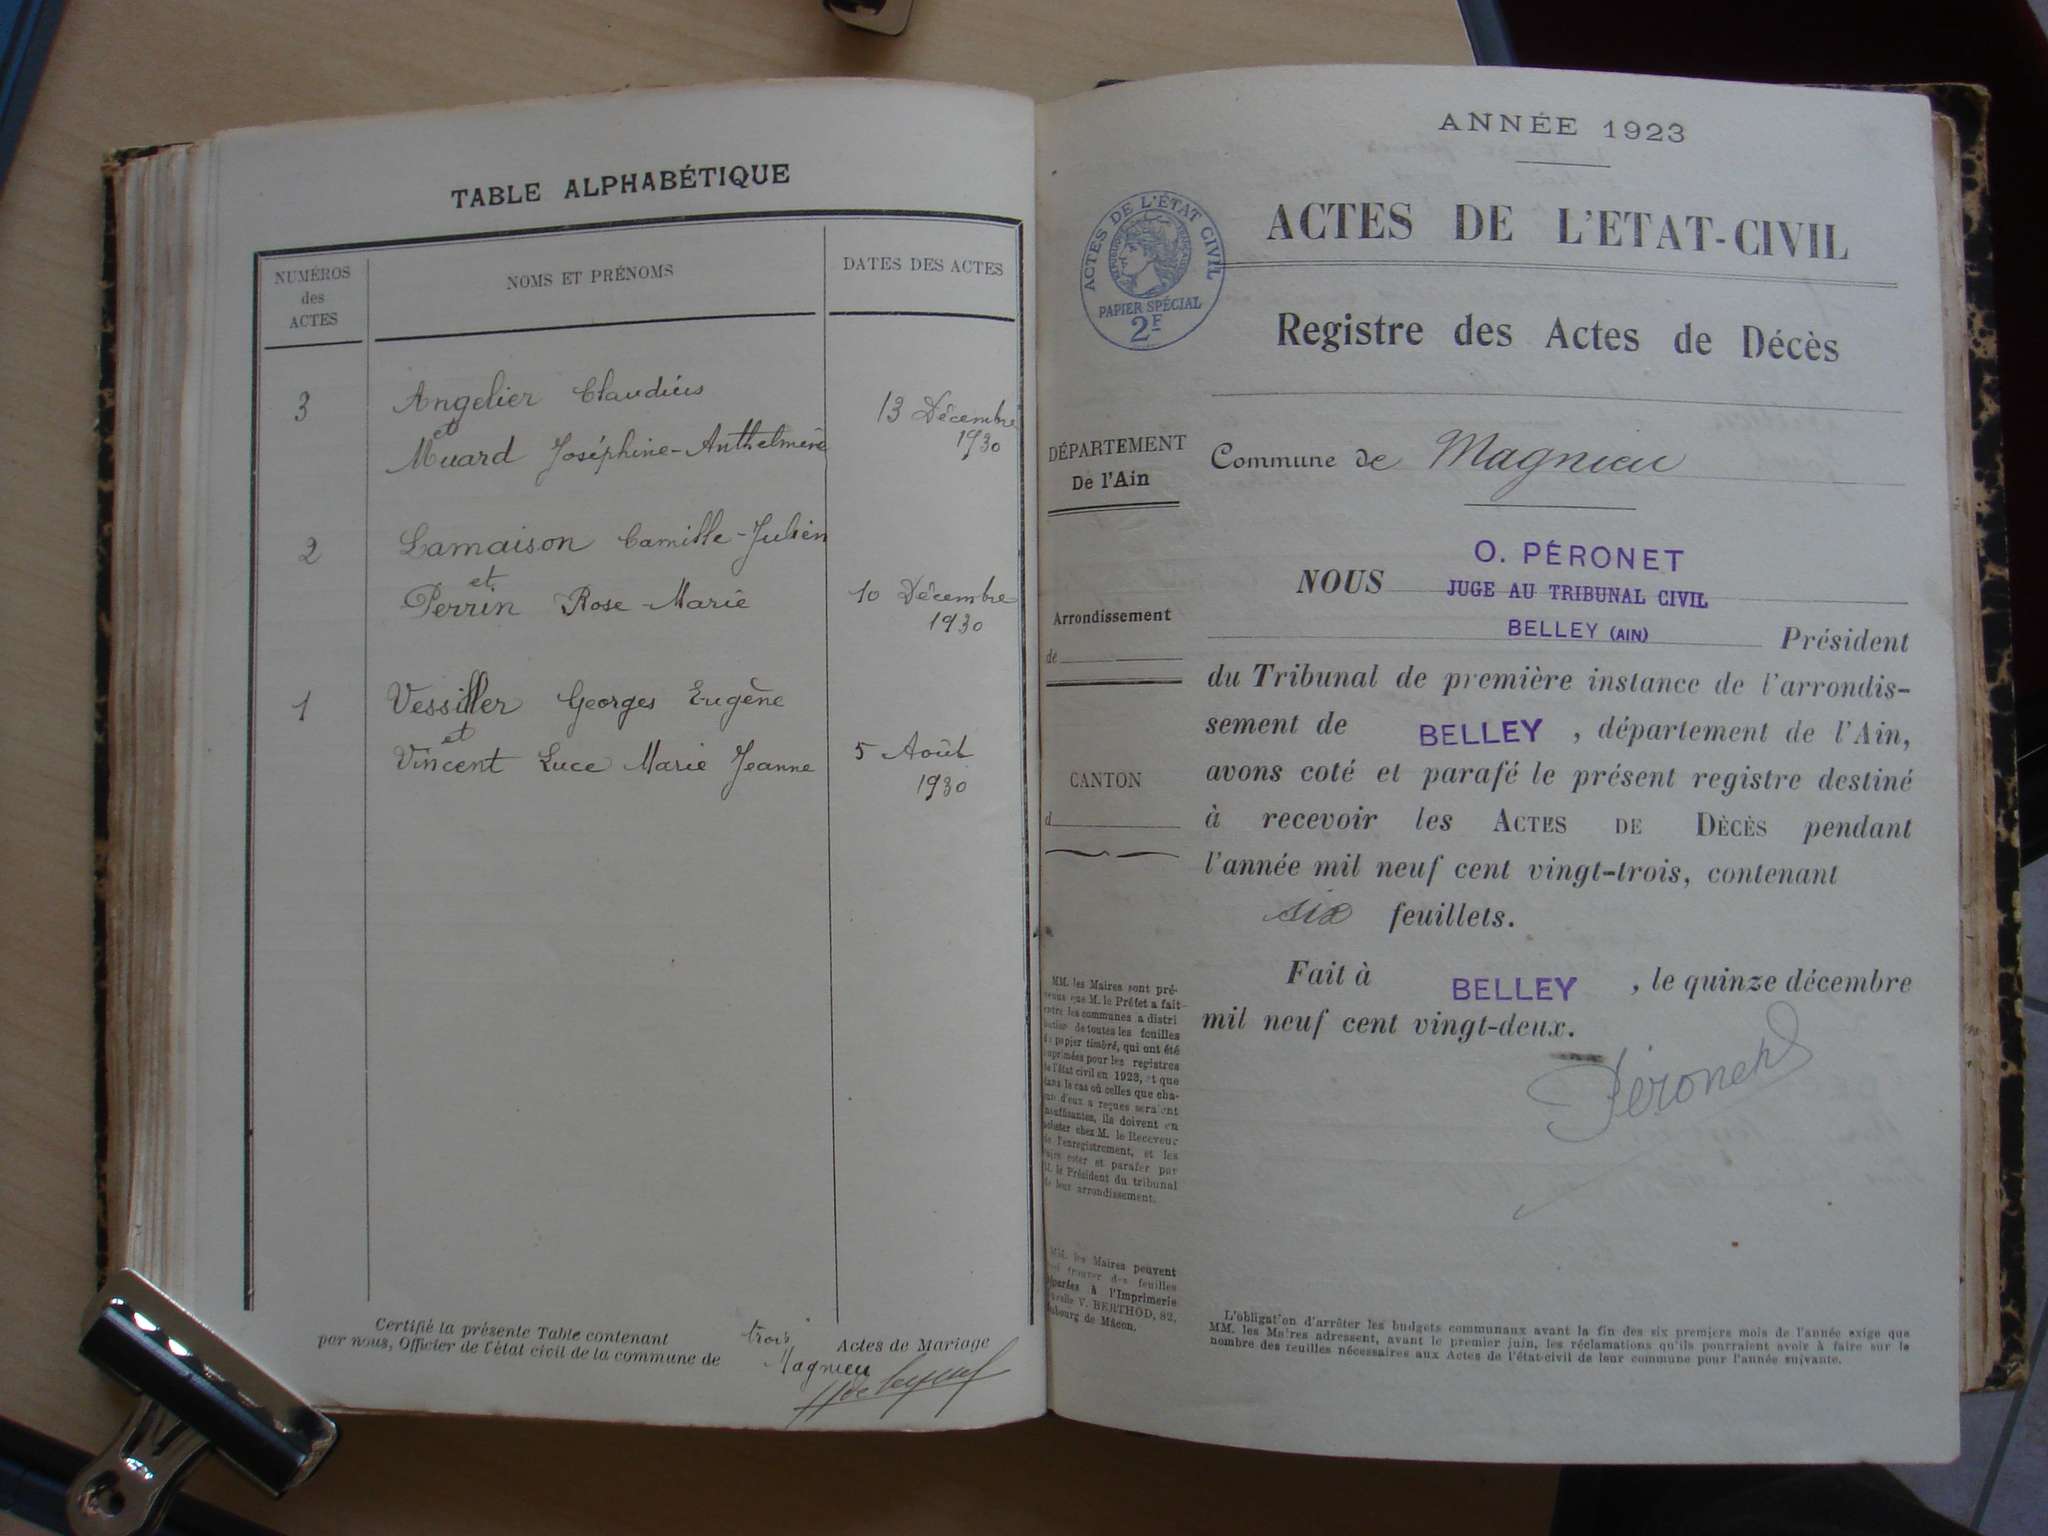 TABLE ALPHABÉTIQUE
NUMÉROS
des
ACTES
NOMS ET PRÉNOMS
DATES DES ACTES
3
Angelier Claudius
et
Muard Joséphine-Anthelmine
13 Décembre
1930
2
Lamaison Camille-Julien
et
Perrin Rose-Marie
10 Décembre
1930
1
Vessiller Georges Eugène
et
Vincent Luce Marie Jeanne
5 Août
1930
Certifié la présente Table contenant trois Actes de Mariage
par nous, Officier de l'état civil de la commune de Magnieu
ANNÉE 1923
ACTES DE L'ÉTAT CIVIL
RÉPUBLIQUE FRANÇAISE
PAPIER SPÉCIAL
2F
ACTES DE L'ETAT-CIVIL
Registre des Actes de Décès
DÉPARTEMENT
De l'Ain
Arrondissement
de
CANTON
d
Commune de Magnieu
O. PÉRONET
NOUS JUGE AU TRIBUNAL CIVIL
BELLEY (AIN) Président
du Tribunal de première instance de l'arrondis-
sement de BELLEY, département de l'Ain,
avons coté et parafé le présent registre destiné
à recevoir les ACTES DE DÉCÈS pendant
l'année mil neuf cent vingt-trois, contenant
six feuillets.
Fait à BELLEY, le quinze décembre
mil neuf cent vingt-deux.
Péronet
MM. les Maires sont pré-
venus que M. le Préfet a fait
entre les communes a distri
bution de toutes les feuilles
de papier timbré, qui ont été
imprimées pour les registres
de l'état civil en 1923, et que
dans le cas où celles que cha-
cun d'eux a reçues seraient
insuffisantes, ils doivent en
acheter chez M. le Receveur
de l'enregistrement, et les
faire coter et parafer par
M. le Président du tribunal
de leur arrondissement.
MM. les Maires peuvent
trouver des feuilles
à l'Imprimerie
V. BERTHOD, 82,
faubourg de Mâcon.
L'obligation d'arrêter les budgets communaux avant la fin des six premiers mois de l'année exige que
MM. les Maires adressent, avant le premier juin, les réclamations qu'ils pourraient avoir à faire sur le
nombre des feuilles nécessaires aux Actes de l'état-civil de leur commune pour l'année suivante.